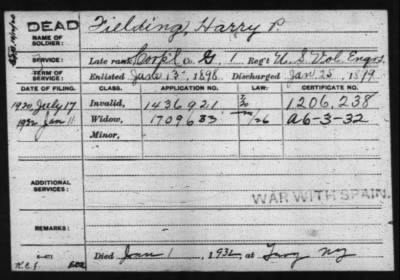 DEAD
NAME OF SOLDIER: Fielding, Harry P.
SERVICE: Late rank Corp'l Co. G. 1 Reg't U. S. Vol. Engrs.
TERM OF SERVICE: Enlisted 13, 1898 Discharged Jan. 25, 1899
DATE OF FILING. CLASS. APPLICATION NO. LAW. CERTIFICATE NO.
1920 July 17 Invalid, 1436921 1206,238
1932 Jan 11 Widow, 1709633 1/26 A6-3-32
Minor,
ADDITIONAL SERVICES:
WAR WITH SPAIN.
REMARKS:
Died Jan 1, 1932, at Troy NY